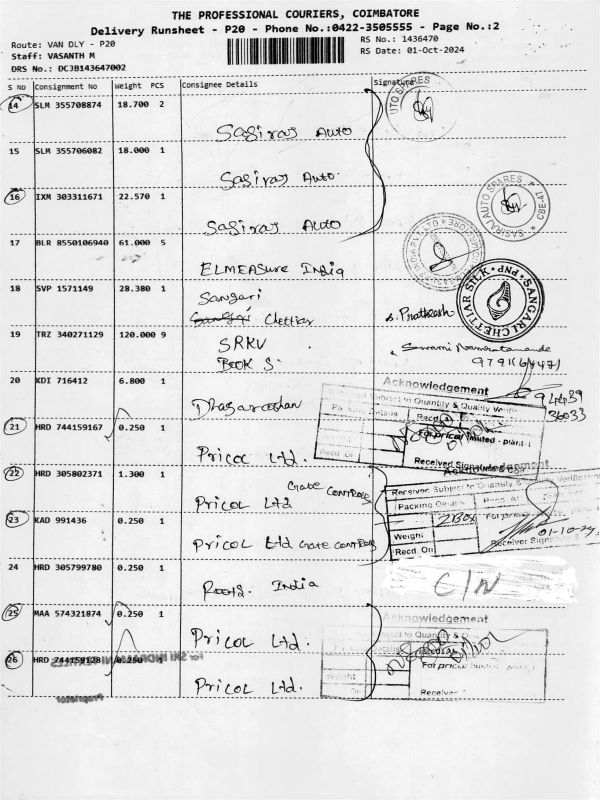 THE PROFESSIONAL COURIERS, COIMBATORE
Delivery Runsheet - P20 - Phone No.:0422-3505555 - Page No.:2
Route: VAN DLY - P20
RS No.: 1436470
Staff: VASANTH M
RS Date: 01-Oct-2024
DRS No.: DCJB143647002
S No Consignment No Weight PCS Consignee Details Signature
14 SLM 355708874 18.700 2
UTO SPARES
Sasiraj Auto
15 SLM 355706082 18.000 1
Sasiraj Auto.
16 IXM 303311671 22.570 1
SASIRAJ AUTO SPARES
CBE-41
Sasiraj Auto
17 BLR 8550106940 61.000 5
ELMEASure India
18 SVP 1571149 28.380 1
Sangari
Chettiar
SANGARI CHETTIAR SILK PNP
S. Prathash
19 TRZ 340271129 120.000 9
SRKV
BOOK S.
Swami
20 KDI 716412 6.800 1
94439
36033
Acknowledgement
Subject to Quantity & Quality Verifi
Dhasarathan
21 HRD 744159167 0.250 1
Recd. On
For pricol limited - plant-1
Received Signature &
Pricol Ltd.
22 HRD 305802371 1.300 1
Gate Controls
Pricol Ltd
Received Subject to Quantity &
Packing Details
2 Box
Weight
Recd. On
01-10-24
Receiver
23 KAD 991436 0.250 1
Pricol Ltd Gate Controls
24 HRD 305799780 0.250 1
Roots. India
C/N
25 MAA 574321874 0.250 1
Acknowledgement
Pricol Ltd.
26 HRD 744159128 0.250 1
For pricol
Receiver
Pricol Ltd.
Proprietor